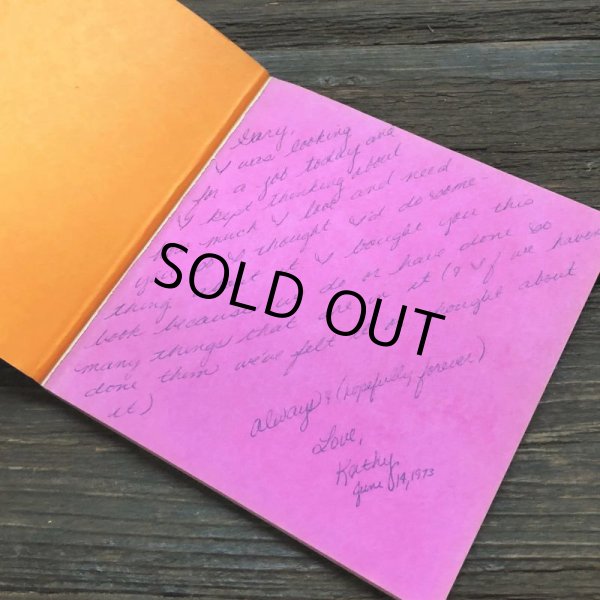 Gary,
I was looking
for a job today and
I kept thinking about
how much I love and need
you so I thought I'd do some-
thing about it I bought you this
book because we do or have done so
many things that are in it (& if we haven't
done them we've felt it or thought about
it)
always & (hopefully forever)
Love,
Kathy
June 14, 1973
SOLD OUT